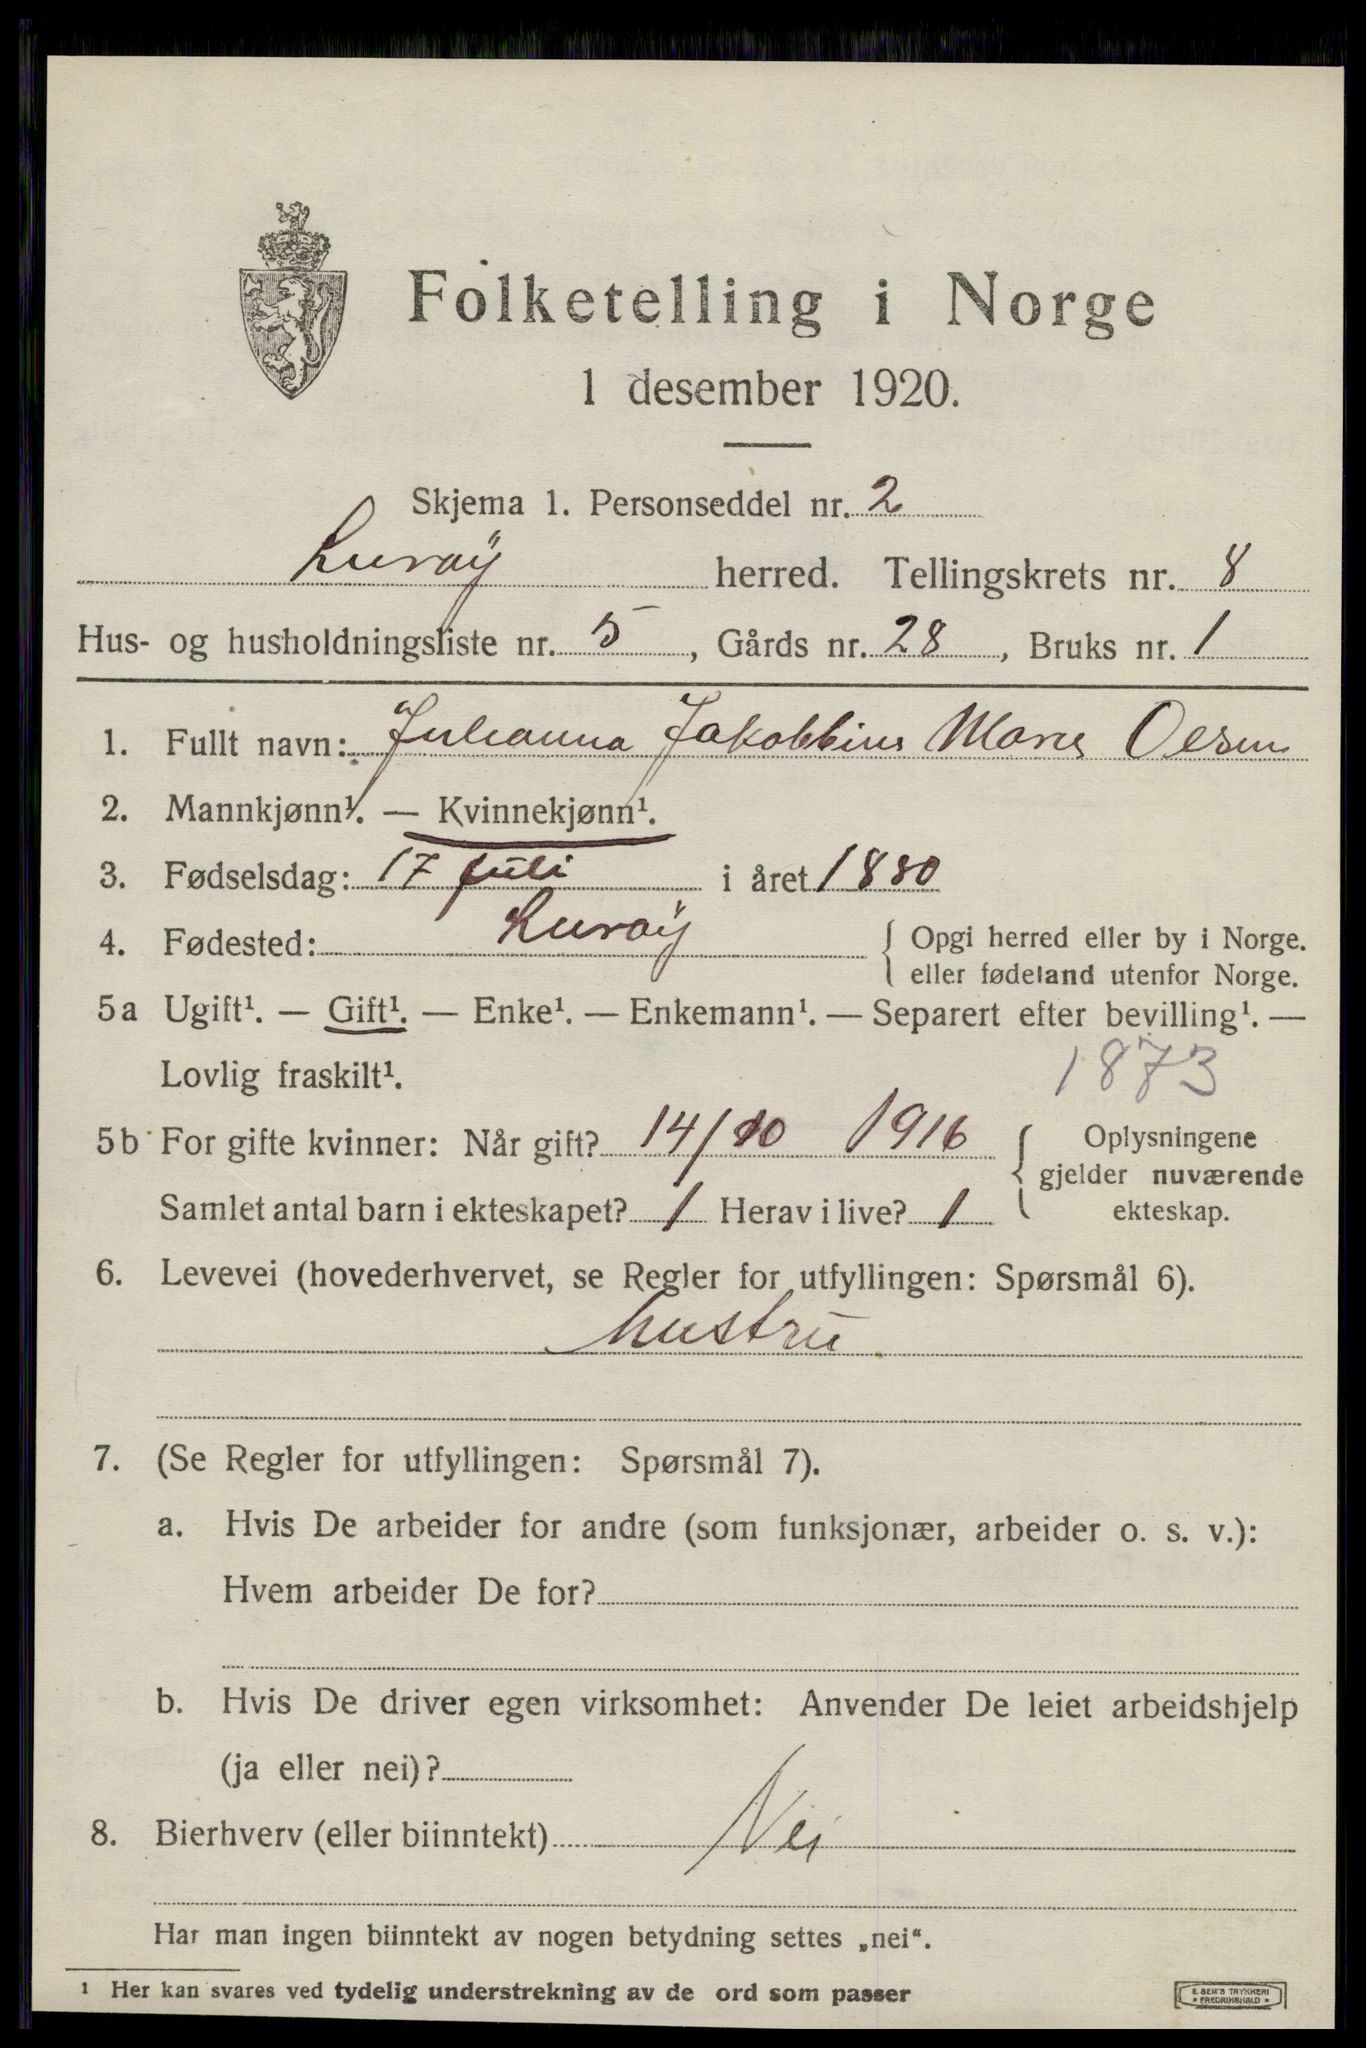 Folketelling i Norge
1 desember 1920.
Skjema 1. Personseddel nr. 2
Lurøy herred. Tellingskrets nr. 8
Hus- og husholdningsliste nr. 5, Gårds nr. 28, Bruks nr. 1
1. Fullt navn: Julianna Jakobbine Marie Olsen
2. Mannkjønn¹. — Kvinnekjønn¹.
3. Fødselsdag: 17 juli i året 1880
4. Fødested: Lurøy { Opgi herred eller by i Norge.
eller fødeland utenfor Norge.
5a Ugift¹. — Gift¹. — Enke¹. — Enkemann¹. — Separert efter bevilling¹. —
Lovlig fraskilt¹. 1873
5b For gifte kvinner: Når gift? 14/10 1916 { Oplysningene
gjelder nuværende
Samlet antal barn i ekteskapet? 1 Herav i live? 1 ekteskap.
6. Levevei (hovederhvervet, se Regler for utfyllingen: Spørsmål 6).
hustru
7. (Se Regler for utfyllingen: Spørsmål 7).
a. Hvis De arbeider for andre (som funksjonær, arbeider o. s. v.):
Hvem arbeider De for?
b. Hvis De driver egen virksomhet: Anvender De leiet arbeidshjelp
(ja eller nei)?
8. Bierhverv (eller biinntekt) Nei
Har man ingen biinntekt av nogen betydning settes „nei“.
¹ Her kan svares ved tydelig understrekning av de ord som passer
E. SEM'S TRYKKERI
• FREDRIKSHALD •